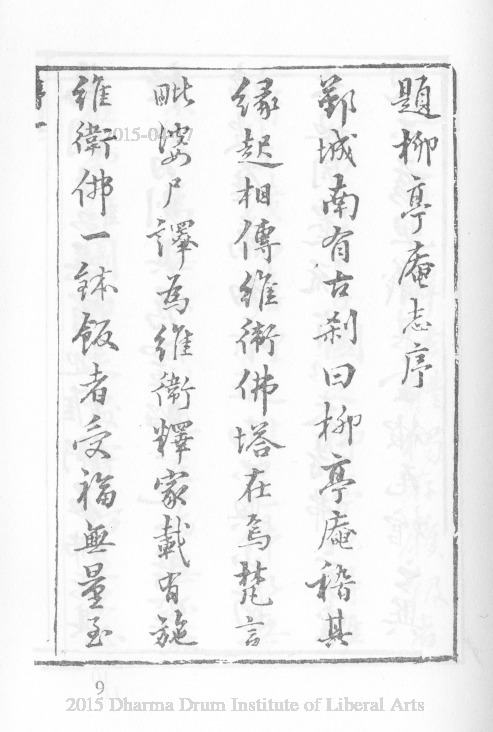 題柳亭庵志序
鄞城南有古刹曰柳亭庵稽其
緣起相傳維衛佛塔在焉梵言
毗婆尸譯為維衛釋家載有施
維衛佛一鉢飯者受福無量至
9
2015 Dharma Drum Institute of Liberal Arts